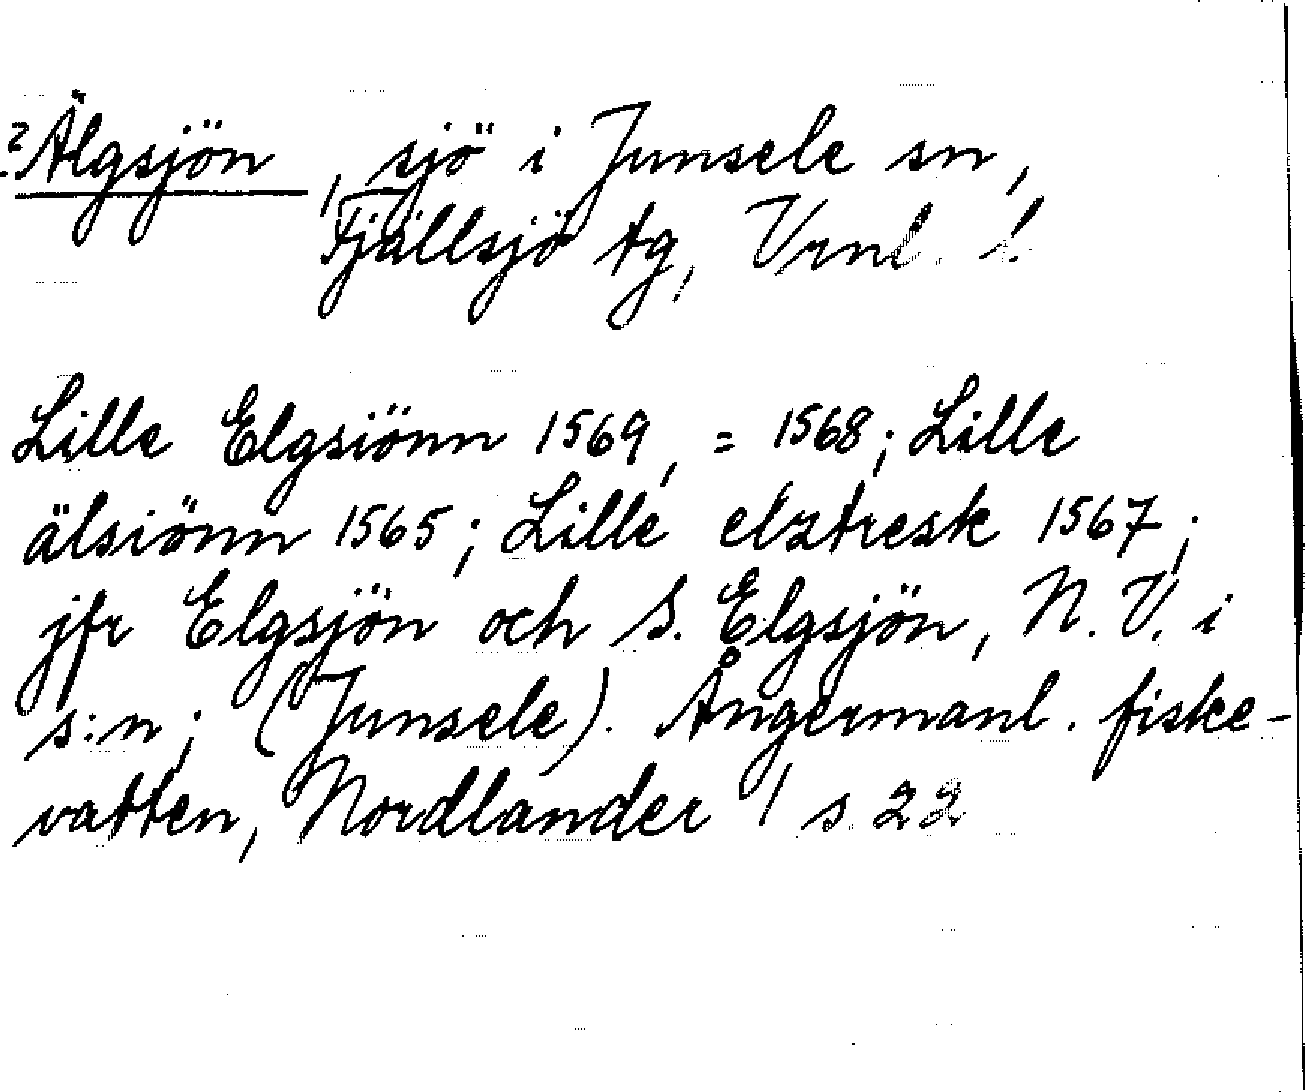 ?Älgsjön, sjö i Junsele sn,
Fjällsjö tg, Vrnl. l.
Lille Elgsiönn 1569, = 1568; Lille
älsiönn 1565; Lille elztresk 1567;
jfr Elgsjön och S. Elgsjön, N. V. i
s:n; (Junsele). Ångermanl. fiske-
vatten, Nordlander / s. 22